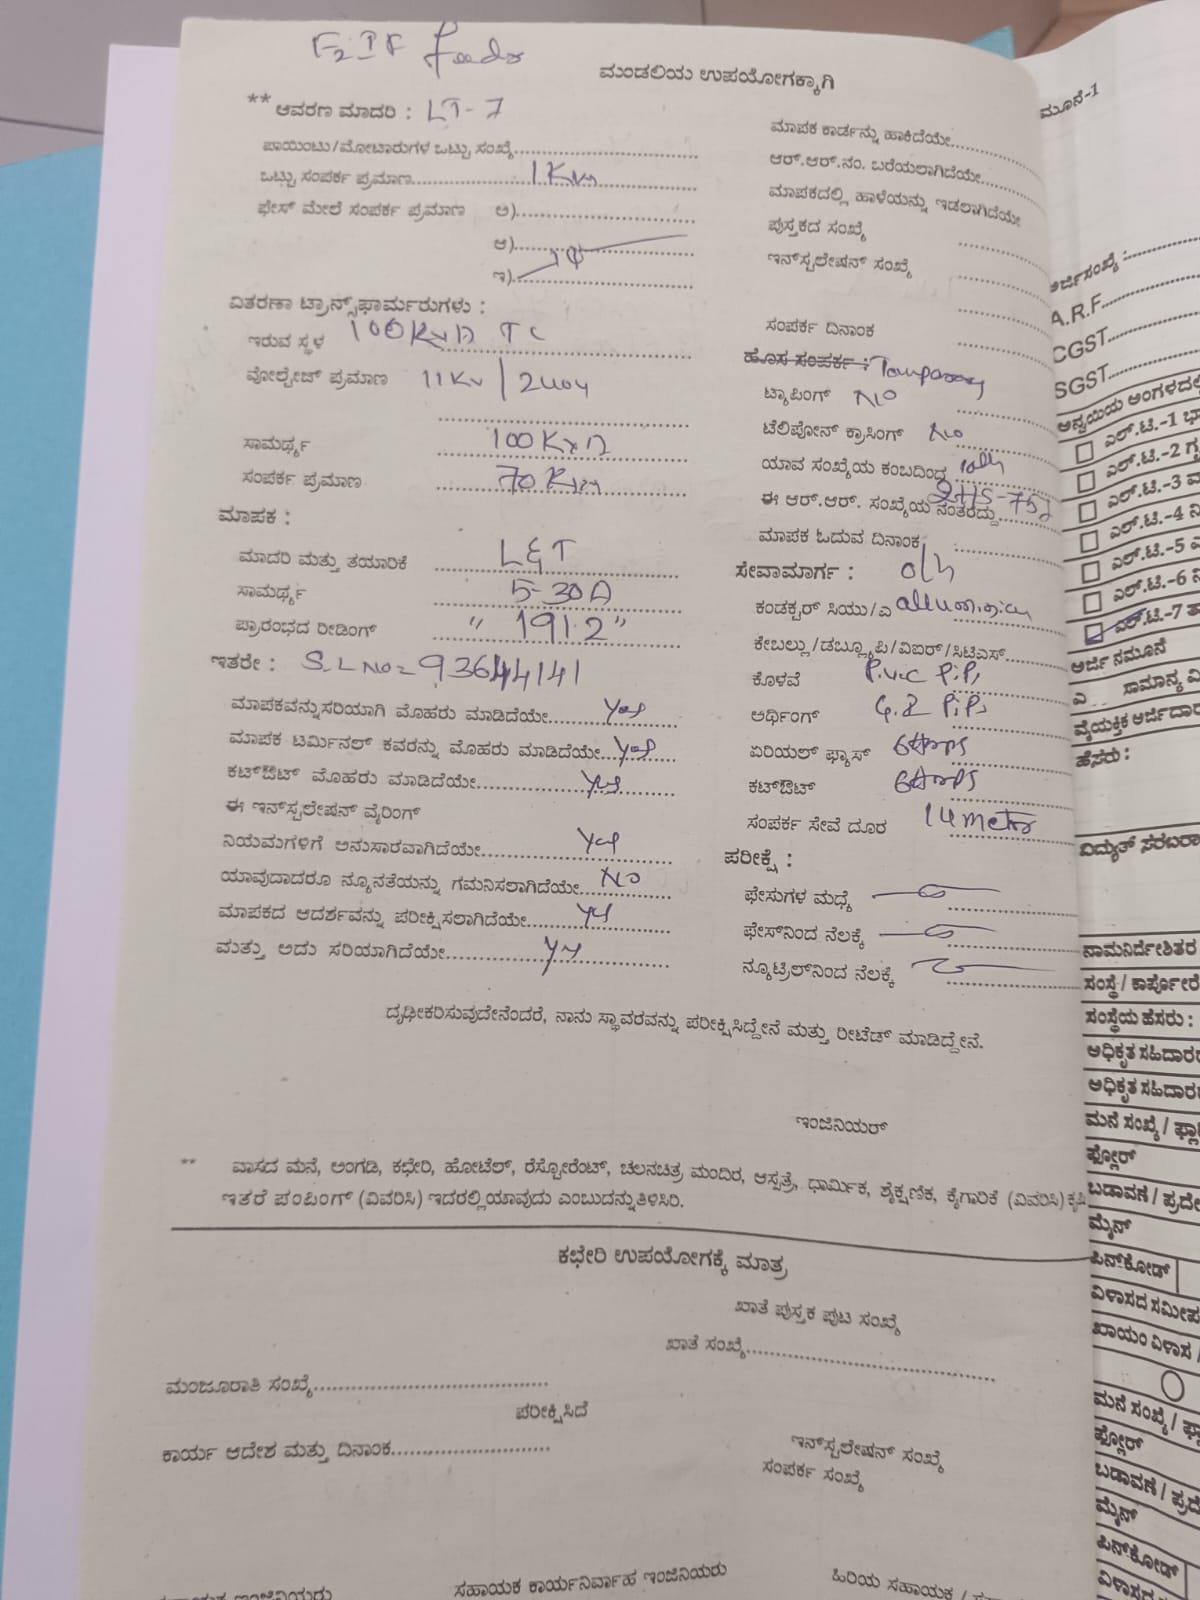 F2 IF feeder
ಮಂಡಲಿಯ ಉಪಯೋಗಕ್ಕಾಗಿ
** ಆವರಣ ಮಾದರಿ : LT-7
ಪಾಯಿಂಟು/ಮೋಟಾರುಗಳ ಒಟ್ಟು ಸಂಖ್ಯೆ
ಒಟ್ಟು ಸಂಪರ್ಕ ಪ್ರಮಾಣ 1 Kw
ಫೇಸ್ ಮೇಲೆ ಸಂಪರ್ಕ ಪ್ರಮಾಣ ಅ)
ಆ)
ಇ)
ವಿತರಣಾ ಟ್ರಾನ್ಸ್‌ಫಾರ್ಮರುಗಳು :
ಇರುವ ಸ್ಥಳ 100KVA TC
ವೋಲ್ಟೇಜ್ ಪ್ರಮಾಣ 11Kv /
ಸಾಮರ್ಥ್ಯ 100KVA
ಸಂಪರ್ಕ ಪ್ರಮಾಣ 70
ಮಾಪಕ :
ಮಾದರಿ ಮತ್ತು ತಯಾರಿಕೆ L&T
ಸಾಮರ್ಥ್ಯ 5-30A
ಪ್ರಾರಂಭದ ರೀಡಿಂಗ್ " 191.2 "
ಇತರೇ : S.L NO = 93644141
ಮಾಪಕವನ್ನು ಸರಿಯಾಗಿ ಮೊಹರು ಮಾಡಿದೆಯೇ yes
ಮಾಪಕ ಟರ್ಮಿನಲ್ ಕವರನ್ನು ಮೊಹರು ಮಾಡಿದೆಯೇ yes
ಕಟ್‌ಔಟ್ ಮೊಹರು ಮಾಡಿದೆಯೇ yes
ಈ ಇನ್‌ಸ್ಟಲೇಷನ್ ವೈರಿಂಗ್
ನಿಯಮಗಳಿಗೆ ಅನುಸಾರವಾಗಿದೆಯೇ yes
ಯಾವುದಾದರೂ ನ್ಯೂನತೆಯನ್ನು ಗಮನಿಸಲಾಗಿದೆಯೇ NO
ಮಾಪಕದ ಆದರ್ಶವನ್ನು ಪರೀಕ್ಷಿಸಲಾಗಿದೆಯೇ yes
ಮತ್ತು ಅದು ಸರಿಯಾಗಿದೆಯೇ yes
ಮಾಪಕ ಕಾರ್ಡನ್ನು ಹಾಕಿದೆಯೇ
ಆರ್.ಆರ್.ನಂ. ಬರೆಯಲಾಗಿದೆಯೇ
ಮಾಪಕದಲ್ಲಿ ಹಾಳೆಯನ್ನು ಇಡಲಾಗಿದೆಯೇ
ಪುಸ್ತಕದ ಸಂಖ್ಯೆ
ಇನ್‌ಸ್ಟಲೇಷನ್ ಸಂಖ್ಯೆ
ಸಂಪರ್ಕ ದಿನಾಂಕ
ಹೊಸ ಸಂಪರ್ಕ : Temporary
ಟ್ಯಾಪಿಂಗ್ NO
ಟೆಲಿಪೋನ್ ಕ್ರಾಸಿಂಗ್ No
ಯಾವ ಸಂಖ್ಯೆಯ ಕಂಬದಿಂದ
ಈ ಆರ್.ಆರ್. ಸಂಖ್ಯೆಯ ನಂತರದ್ದು
ಮಾಪಕ ಓದುವ ದಿನಾಂಕ
ಸೇವಾಮಾರ್ಗ : o/h
ಕಂಡಕ್ಟರ್ ಸಿಯು/ಎ
ಕೇಬಲ್ಲು/ಡಬ್ಲ್ಯೂಪಿ/ವಿಐರ್/ಸಿಟಿಎಸ್
ಕೊಳವೆ P.V.C
ಅರ್ಥಿಂಗ್ G.I
ಏರಿಯಲ್ ಫ್ಯೂಸ್
ಕಟ್‌ಔಟ್
ಸಂಪರ್ಕ ಸೇವೆ ದೂರ 14 meter
ಪರೀಕ್ಷೆ :
ಫೇಸುಗಳ ಮಧ್ಯೆ
ಫೇಸ್‌ನಿಂದ ನೆಲಕ್ಕೆ
ನ್ಯೂಟ್ರಲ್‌ನಿಂದ ನೆಲಕ್ಕೆ
ದೃಢೀಕರಿಸುವುದೇನೆಂದರೆ, ನಾನು ಸ್ಥಾವರವನ್ನು ಪರೀಕ್ಷಿಸಿದ್ದೇನೆ ಮತ್ತು ರೀಟೆಡ್ ಮಾಡಿದ್ದೇನೆ.
ಇಂಜಿನಿಯರ್
** ವಾಸದ ಮನೆ, ಅಂಗಡಿ, ಕಛೇರಿ, ಹೋಟೆಲ್, ರೆಸ್ಟೋರೆಂಟ್, ಚಲನಚಿತ್ರ ಮಂದಿರ, ಆಸ್ಪತ್ರೆ, ಧಾರ್ಮಿಕ, ಶೈಕ್ಷಣಿಕ, ಕೈಗಾರಿಕೆ (ವಿವರಿಸಿ) ಕೃಷಿ
ಇತರೆ ಪಂಪಿಂಗ್ (ವಿವರಿಸಿ) ಇದರಲ್ಲಿಯಾವುದು ಎಂಬುದನ್ನುತಿಳಿಸಿರಿ.
ಕಛೇರಿ ಉಪಯೋಗಕ್ಕೆ ಮಾತ್ರ
ಖಾತೆ ಪುಸ್ತಕ ಪುಟ ಸಂಖ್ಯೆ
ಖಾತೆ ಸಂಖ್ಯೆ
ಮಂಜೂರಾತಿ ಸಂಖ್ಯೆ
ಪರೀಕ್ಷಿಸಿದೆ
ಕಾರ್ಯ ಆದೇಶ ಮತ್ತು ದಿನಾಂಕ
ಇನ್‌ಸ್ಟಲೇಷನ್ ಸಂಖ್ಯೆ
ಸಂಪರ್ಕ ಸಂಖ್ಯೆ
ಇಂಜಿನಿಯರು
ಸಹಾಯಕ ಕಾರ್ಯನಿರ್ವಾಹ ಇಂಜಿನಿಯರು
ಹಿರಿಯ ಸಹಾಯಕ /
ಮೂನೆ-1
ಅರ್ಜಿಸಂಖ್ಯೆ :
A.R.F
CGST
SGST
ಅನ್ವಯಿಯ ಅಂಗಳದಲ್ಲಿ
ಎಲ್.ಟಿ.-1
ಎಲ್.ಟಿ.-2
ಎಲ್.ಟಿ.-3
ಎಲ್.ಟಿ.-4
ಎಲ್.ಟಿ.-5
ಎಲ್.ಟಿ.-6
ಎಲ್.ಟಿ.-7
ಅರ್ಜಿ ನಮೂನೆ
ಎ ಸಾಮಾನ್ಯ
ವೈಯಕ್ತಿಕ ಅರ್ಜಿದಾರ
ಹೆಸರು :
ವಿದ್ಯುತ್ ಸರಬರಾ
ನಾಮನಿರ್ದೇಶಿತರ
ಸಂಸ್ಥೆ / ಕಾರ್ಪೋರೆ
ಸಂಸ್ಥೆಯ ಹೆಸರು :
ಅಧಿಕೃತ ಸಹಿದಾರರ
ಅಧಿಕೃತ ಸಹಿದಾರ
ಮನೆ ಸಂಖ್ಯೆ / ಫ್ಲಾ
ಫ್ಲೋರ್
ಬಡಾವಣೆ / ಪ್ರದೇ
ಮೈನ್
ಪಿನ್‌ಕೋಡ್
ವಿಳಾಸದ ಸಮೀಪ
ಖಾಯಂ ವಿಳಾಸ /
ಮನೆ ಸಂಖ್ಯೆ / ಫ್ಲಾ
ಫ್ಲೋರ್
ಬಡಾವಣೆ / ಪ್ರದೇ
ಮೈನ್
ಪಿನ್‌ಕೋಡ್